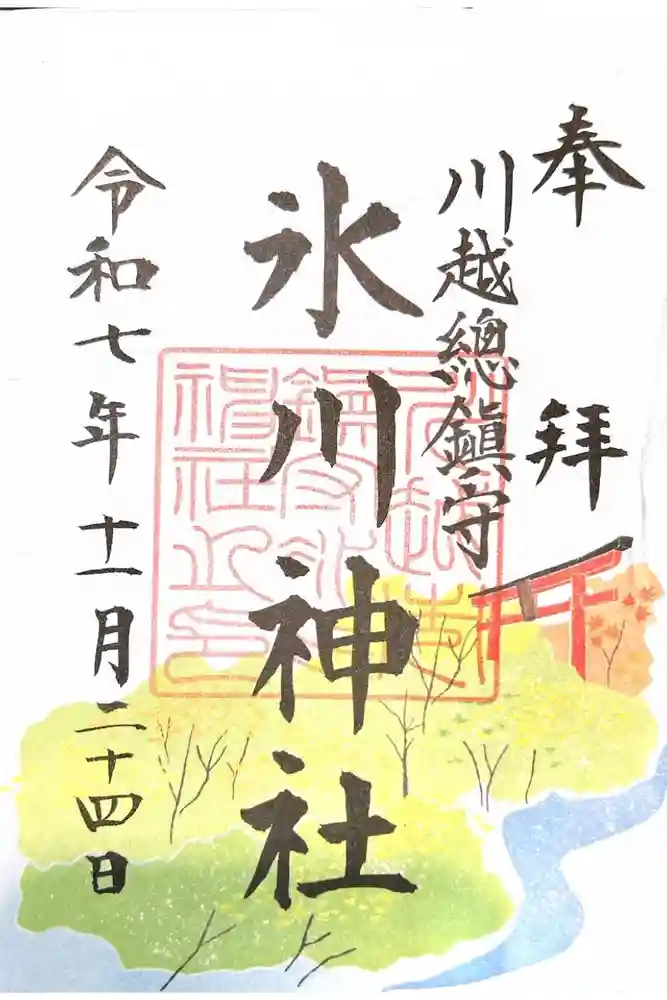 奉拝
川越總鎮守
氷川神社
令和七年十一月二十四日